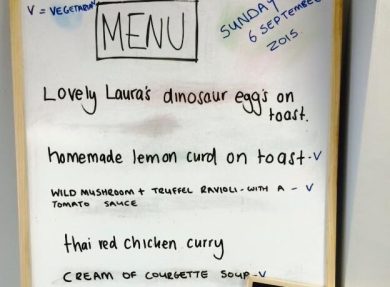 V = VEGETARIAN
MENU
SUNDAY
6 SEPTEMBER
2015
Lovely Laura's dinosaur egg's on
toast.
homemade lemon curd on toast - V
WILD MUSHROOM + TRUFFEL RAVIOLI - WITH A - V
TOMATO SAUCE
thai red chicken curry
CREAM OF COURGETTE SOUP - V